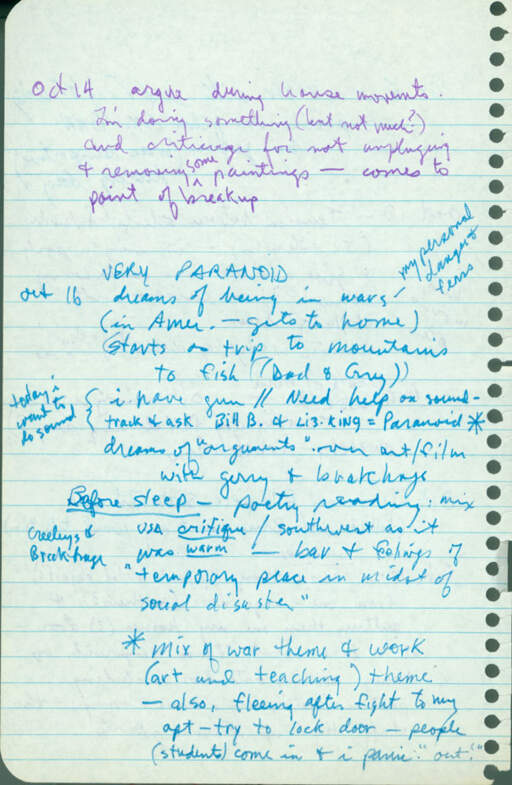 Oct 14 argue during house movements.
I'm doing something (but not much?)
and criticism for not unplugging
& removing some paintings — comes to
point of breakup
my personal
danger &
fears
VERY PARANOID
Oct 16 dreams of being in wars
(in Amer. — gets to home)
(starts as trip to mountains
to fish ((Dad & Guy))
today i
want to
do sound
i have gun // Need help on sound-
track & ask Bill B. & Liz. King = Paranoid *
dreams of "arguments" over art/film
with gerry & brakhage
Before sleep — poetry reading: mix
Creeleys &
Brakhage
USA critique / southwest as it
was warm — bar & feelings of
"temporary peace in midst of
social disaster"
* mix of war theme & work
(art and teaching) theme
— also, fleeing after fight to my
apt — try to lock door — people
(students) come in & i panic: "out!"